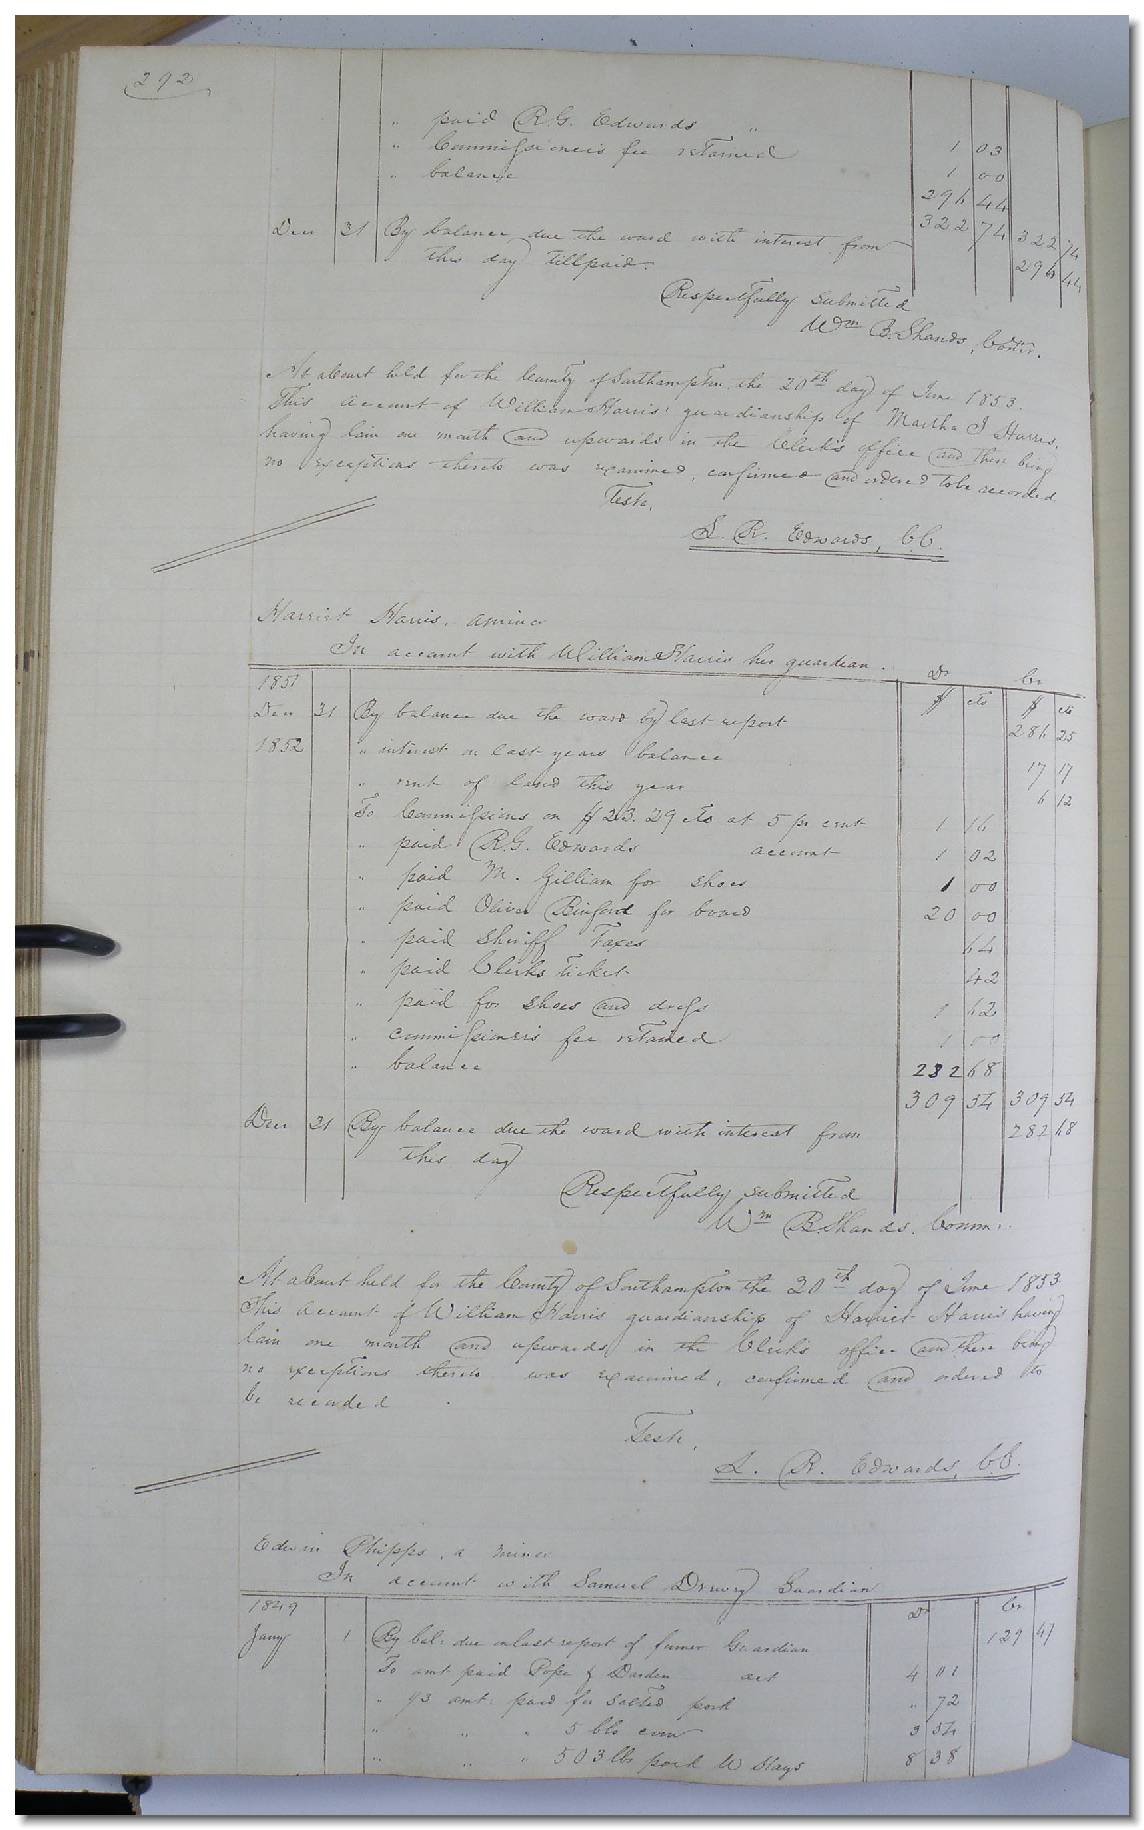 292
" paid R.G. Edwards "  1 03
" Commissioner's fee retained  1 00
" balance  296 44
322 74  322 74
Decr 31 By balance due the ward with interest from  296 44
this day till paid.
Respectfully submitted
Wm B. Shands, Comr.
At a Court held for the County of Southampton the 20th day of June 1853.
This account of William Harris' guardianship of Martha J Harris,
having lain one month and upwards in the Clerk's office and there being
no exceptions thereto was examined, confirmed and ordered to be recorded
Teste,
L. R. Edwards, C.C.
Harriet Harris, a minor
In account with William Harris her guardian.  Dr  Cr
1851  $ cts  $ cts
Decr 31 By balance due the ward by last report  286 25
1852 " interest on last years balance  17 17
" rent of land this year  6 12
To Commissions on $23.29 cts at 5 pr cent  1 16
" paid R.G. Edwards account  1 02
" paid M. Gilliam for shoes  1 00
" paid Oliver Binford for board  20 00
" paid Sheriff Taxes  64
" paid Clerks Ticket  42
" paid for shoes and dress  1 62
" commissioner's fee retained  1 00
" balance  282 68
309 54  309 54
Decr 31 By balance due the ward with interest from  282 68
this day
Respectfully submitted
Wm B. Shands, Comm.
At a Court held for the County of Southampton the 20th day of June 1853
This account of William Harris guardianship of Harriet Harris having
lain one month and upwards in the Clerk's office and there being
no exceptions thereto was examined, confirmed and ordered to
be recorded
Teste,
L. R. Edwards, C.C.
Edwin Phipps, a minor
In account with Samuel Drewry Guardian
1849  Dr  Cr
Jany 1 By bal: due on last report of former Guardian  129 47
To amt paid Pope & Darden act  4 01
" 1/3 amt: paid for salted pork  " 72
" " " 5 bbls corn  3 54
" " " 503 lbs pork W Stays  8 38